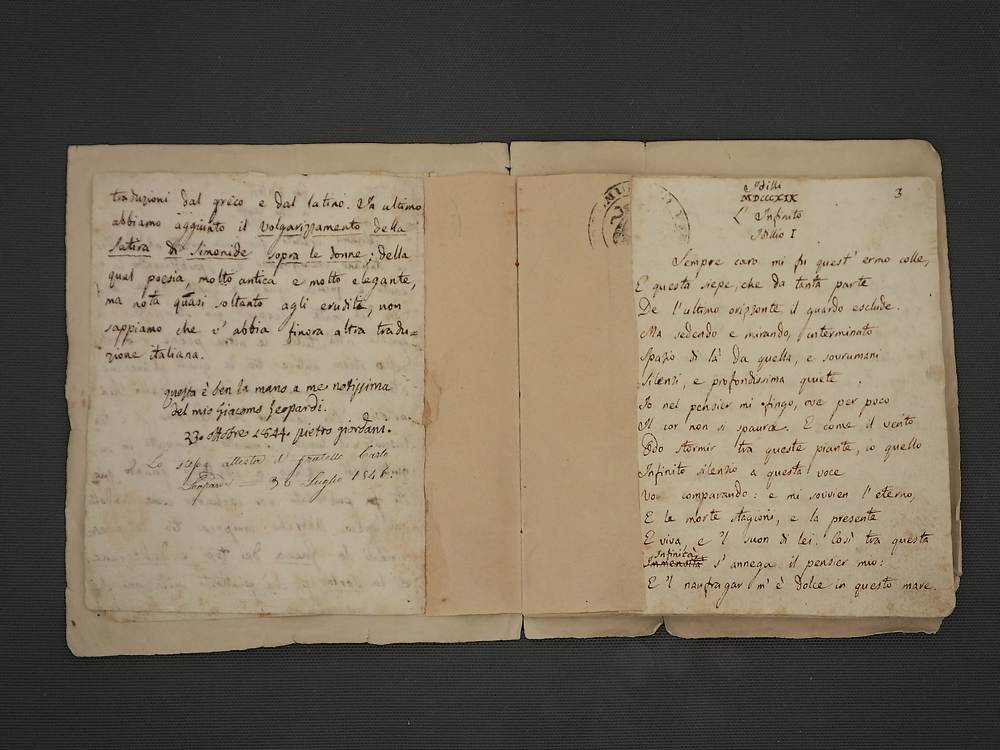 traduzioni dal greco e dal latino. In ultimo
abbiamo aggiunto il volgarizzamento della
satira di Simonide sopra le donne; della
qual poesia, molto antica e molto elegante,
ma nota quasi soltanto agli eruditi, non
sappiamo che v' abbia finora altra tradu=
zione italiana.
questa è ben la mano a me notissima
del mio Giacomo Leopardi.
23. ottobre 1844. pietro giordani.
Lo stesso attesta il fratello Carlo
Leopardi — 30 Luglio 1846.
3
Idilli
MDCCCXIX
L' Infinito
Idillio I
Sempre caro mi fu quest' ermo colle,
E questa siepe, che da tanta parte
De l' ultimo orizzonte il guardo esclude.
Ma sedendo e mirando, interminato
Spazio di là da quella, e sovrumani
Silenzi, e profondissima quiete
Io nel pensier mi fingo, ove per poco
Il cor non si spaura. E come il vento
Odo stormir tra queste piante, io quello
Infinito silenzio a questa voce
Vo comparando: e mi sovvien l' eterno,
E le morte stagioni, e la presente
E viva, e 'l suon di lei. Così tra questa
Infinità
Immensità s' annega il pensier mio:
E 'l naufragar m' è dolce in questo mare.